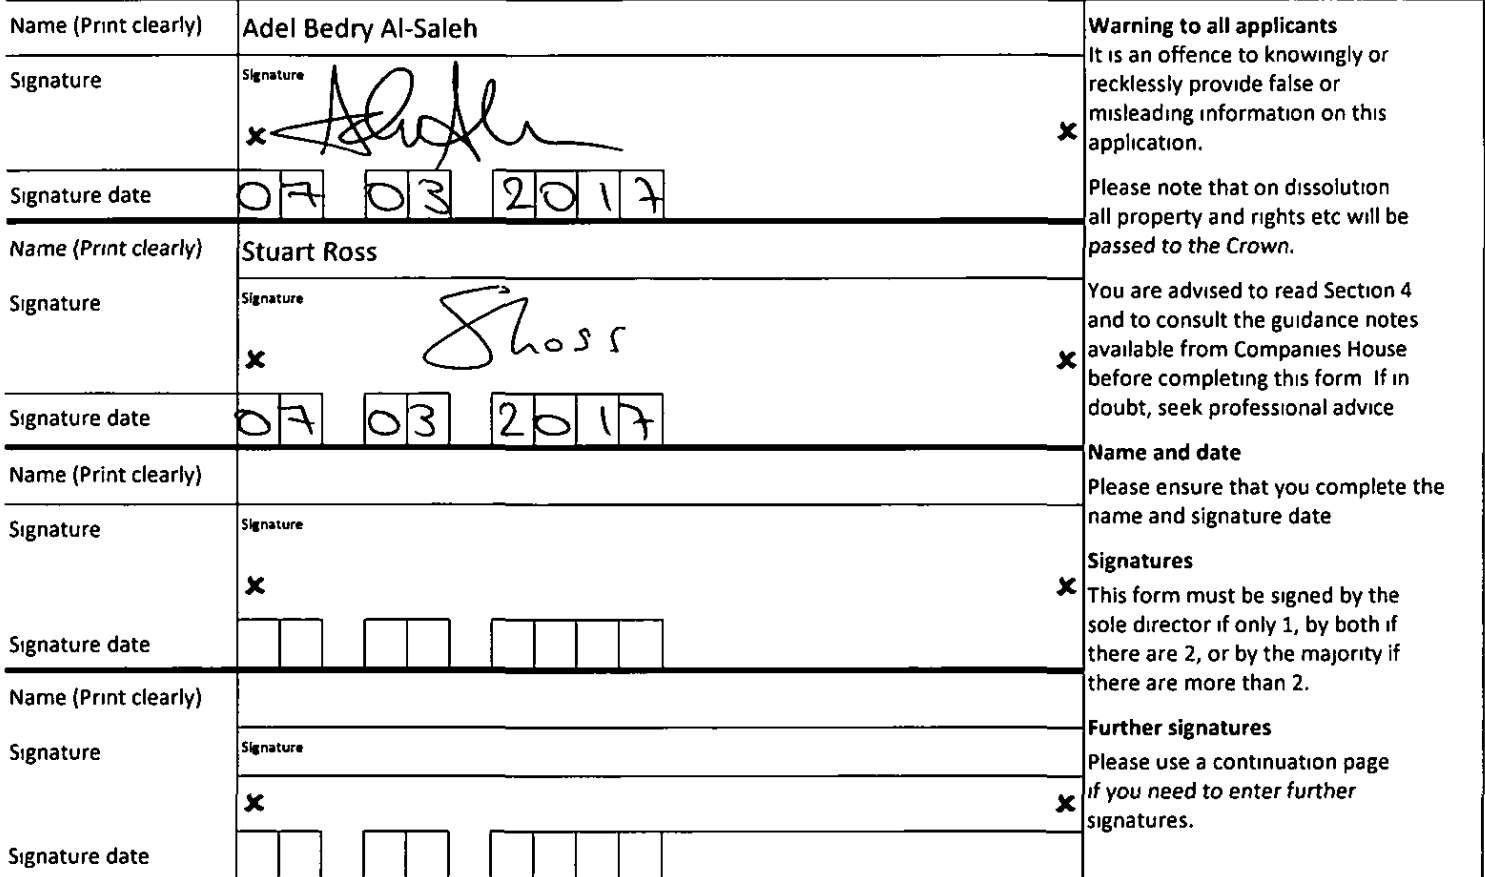 Name (Print clearly) Adel Bedry Al-Saleh
Signature Signature
x x
Signature date 07 03 2017
Name (Print clearly) Stuart Ross
Signature Signature
x SRoss x
Signature date 07 03 2017
Name (Print clearly)
Signature Signature
x x
Signature date
Name (Print clearly)
Signature Signature
x x
Signature date
Warning to all applicants
It is an offence to knowingly or
recklessly provide false or
misleading information on this
application.
Please note that on dissolution
all property and rights etc will be
passed to the Crown.
You are advised to read Section 4
and to consult the guidance notes
available from Companies House
before completing this form If in
doubt, seek professional advice
Name and date
Please ensure that you complete the
name and signature date
Signatures
This form must be signed by the
sole director if only 1, by both if
there are 2, or by the majority if
there are more than 2.
Further signatures
Please use a continuation page
if you need to enter further
signatures.